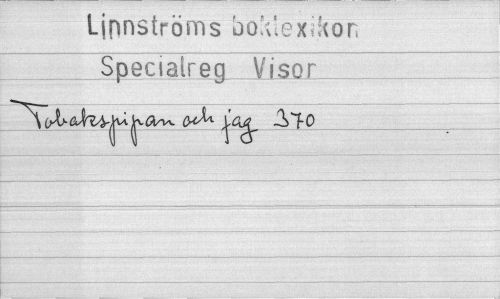 Linnströms boklexikon
Specialreg Visor
Tobakspipan och jag 370